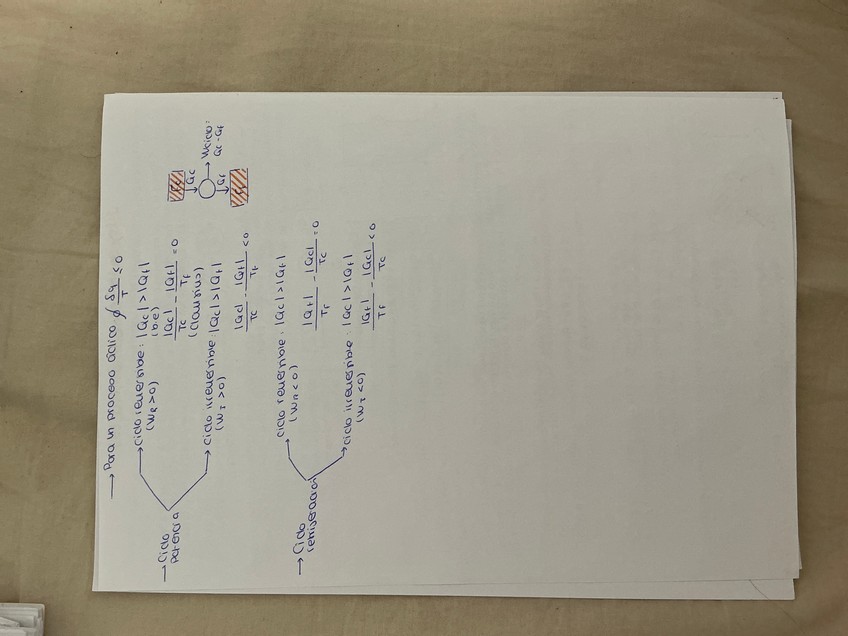 → Para un proceso cíclico ∮ δq/T ≤ 0
→ Ciclo potencia
→ Ciclo reversible: |Qc| > |Qf|
(WR > 0) (b.e)
|Qc|/Tc - |Qf|/Tf = 0
(Clausius)
→ Ciclo irreversible |Qc| > |Qf|
(WI > 0)
|Qc|/Tc - |Qf|/Tf < 0
Qc
→ Wciclo:
Qc - Qf
Qf
→ Ciclo refrigeración
ciclo reversible: |Qc| > |Qf|
(WR < 0)
|Qf|/Tf - |Qc|/Tc = 0
→ ciclo irreversible: |Qc| > |Qf|
(WI < 0)
|Qf|/Tf - |Qc|/Tc < 0